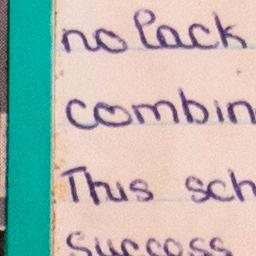 no lack
combin
This sch
success